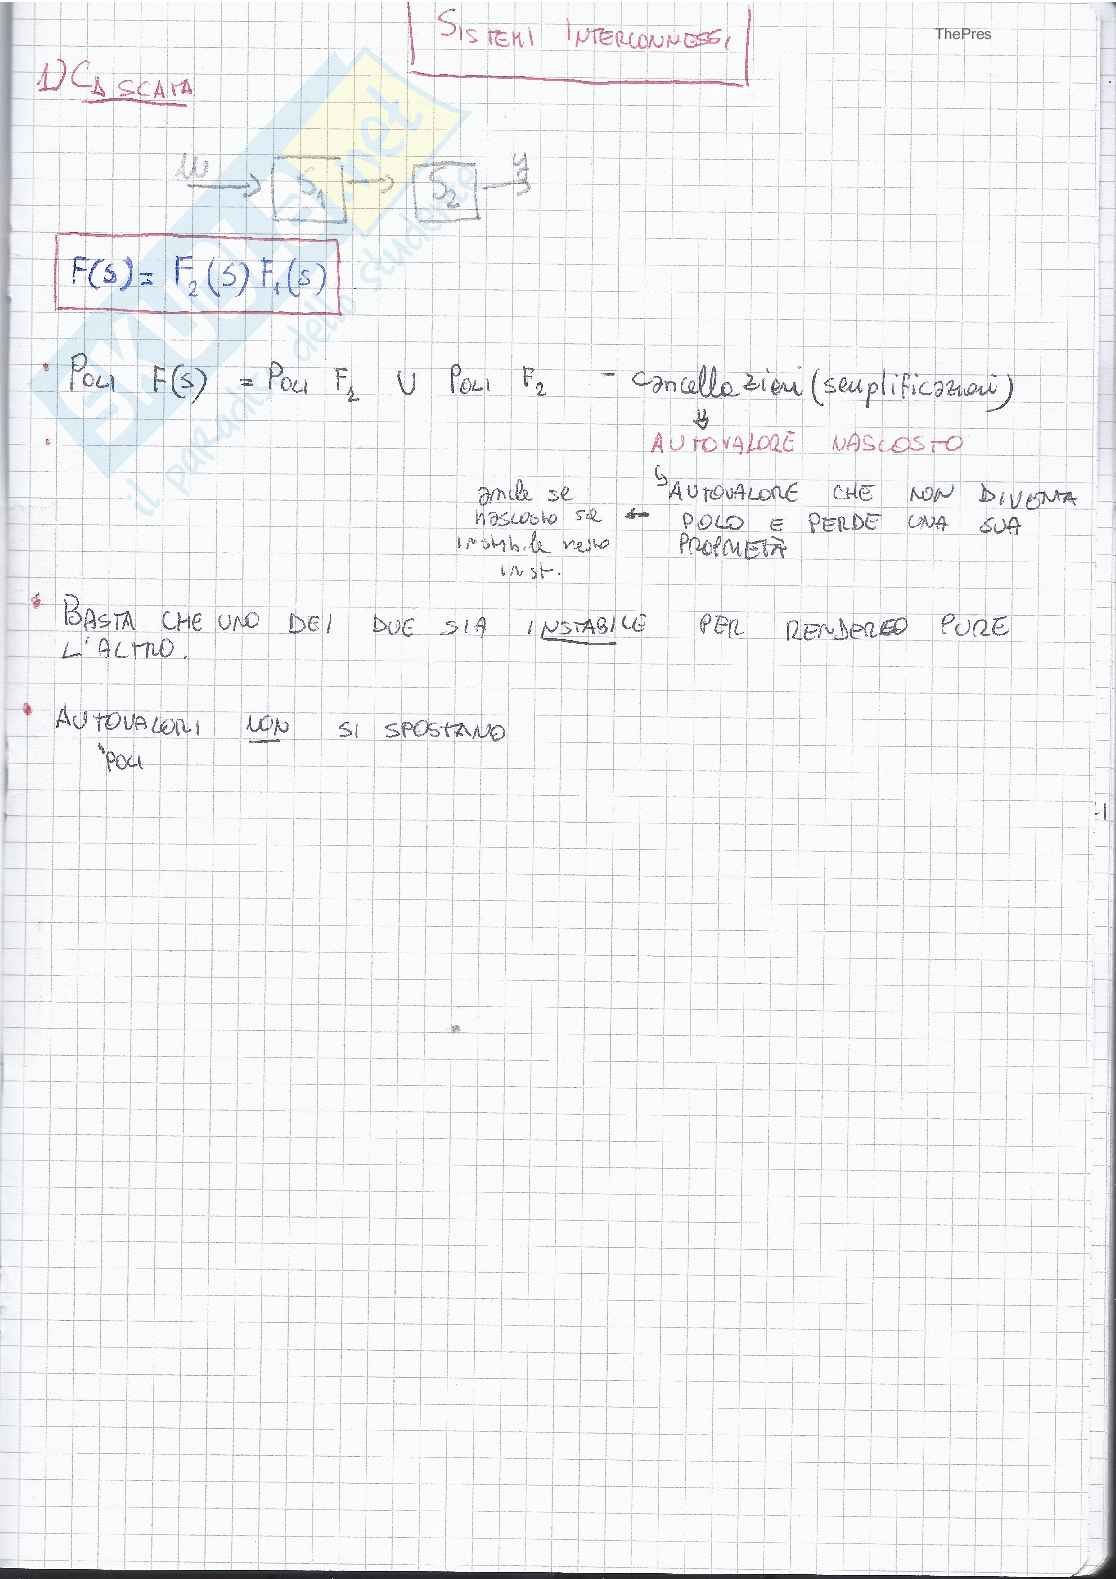 SISTEMI INTERCONNESSI
ThePres
1) CASCATA
u S1 S2 y
F(s) = F2(s) F1(s)
• POLI F(s) = POLI F2 U POLI F2 - cancellazioni (semplificazioni)
• AUTOVALORE NASCOSTO
AUTOVALORE CHE NON DIVENTA
POLO E PERDE UNA SUA
PROPRIETÀ
anche se
nascosto se
instabile resto
inst.
• BASTA CHE UNO DEI DUE SIA INSTABILE PER RENDERLO PURE
L'ALTRO.
• AUTOVALORI NON SI SPOSTANO
POLI
SKUOLA.net
il paradiso dello studente